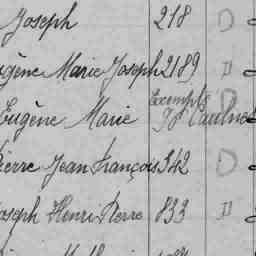 Joseph 218 D
gène Marie Joseph 2189 D
Exempts D
Eugène Marie
Pierre Jean François 342 D
Joseph Henri Pierre 833 D